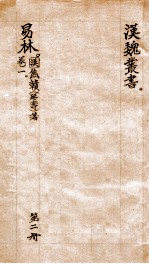 漢魏叢書
易林
卷一
漢焦贛(延壽)著
第二册